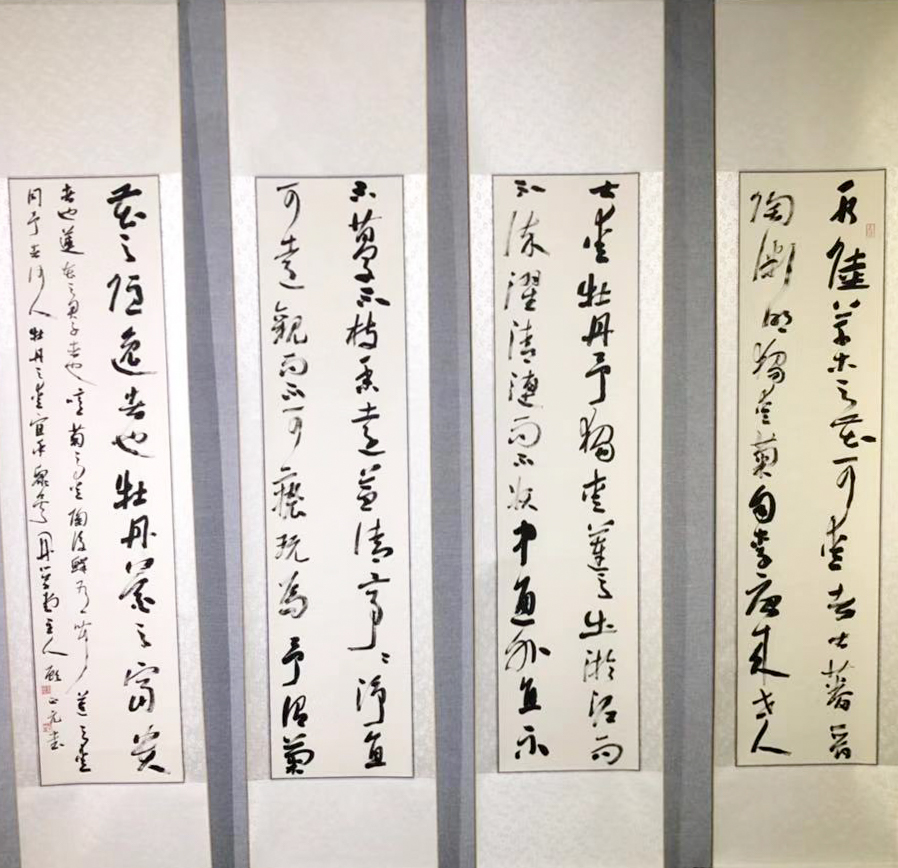 水陸草木之花可愛者甚蕃晋
陶淵明獨愛菊自李唐来世人
甚愛牡丹予獨愛蓮之出淤泥而
不染濯清漣而不妖中通外直
不蔓不枝香遠益清亭〻淨直
可遠觀而不可褻玩焉予謂菊
花之隱逸者也牡丹花之富貴
者也蓮花之君子者也噫菊之愛陶後鮮有聞蓮之愛
同予者何人牡丹之愛宜乎衆矣 主人 正元書